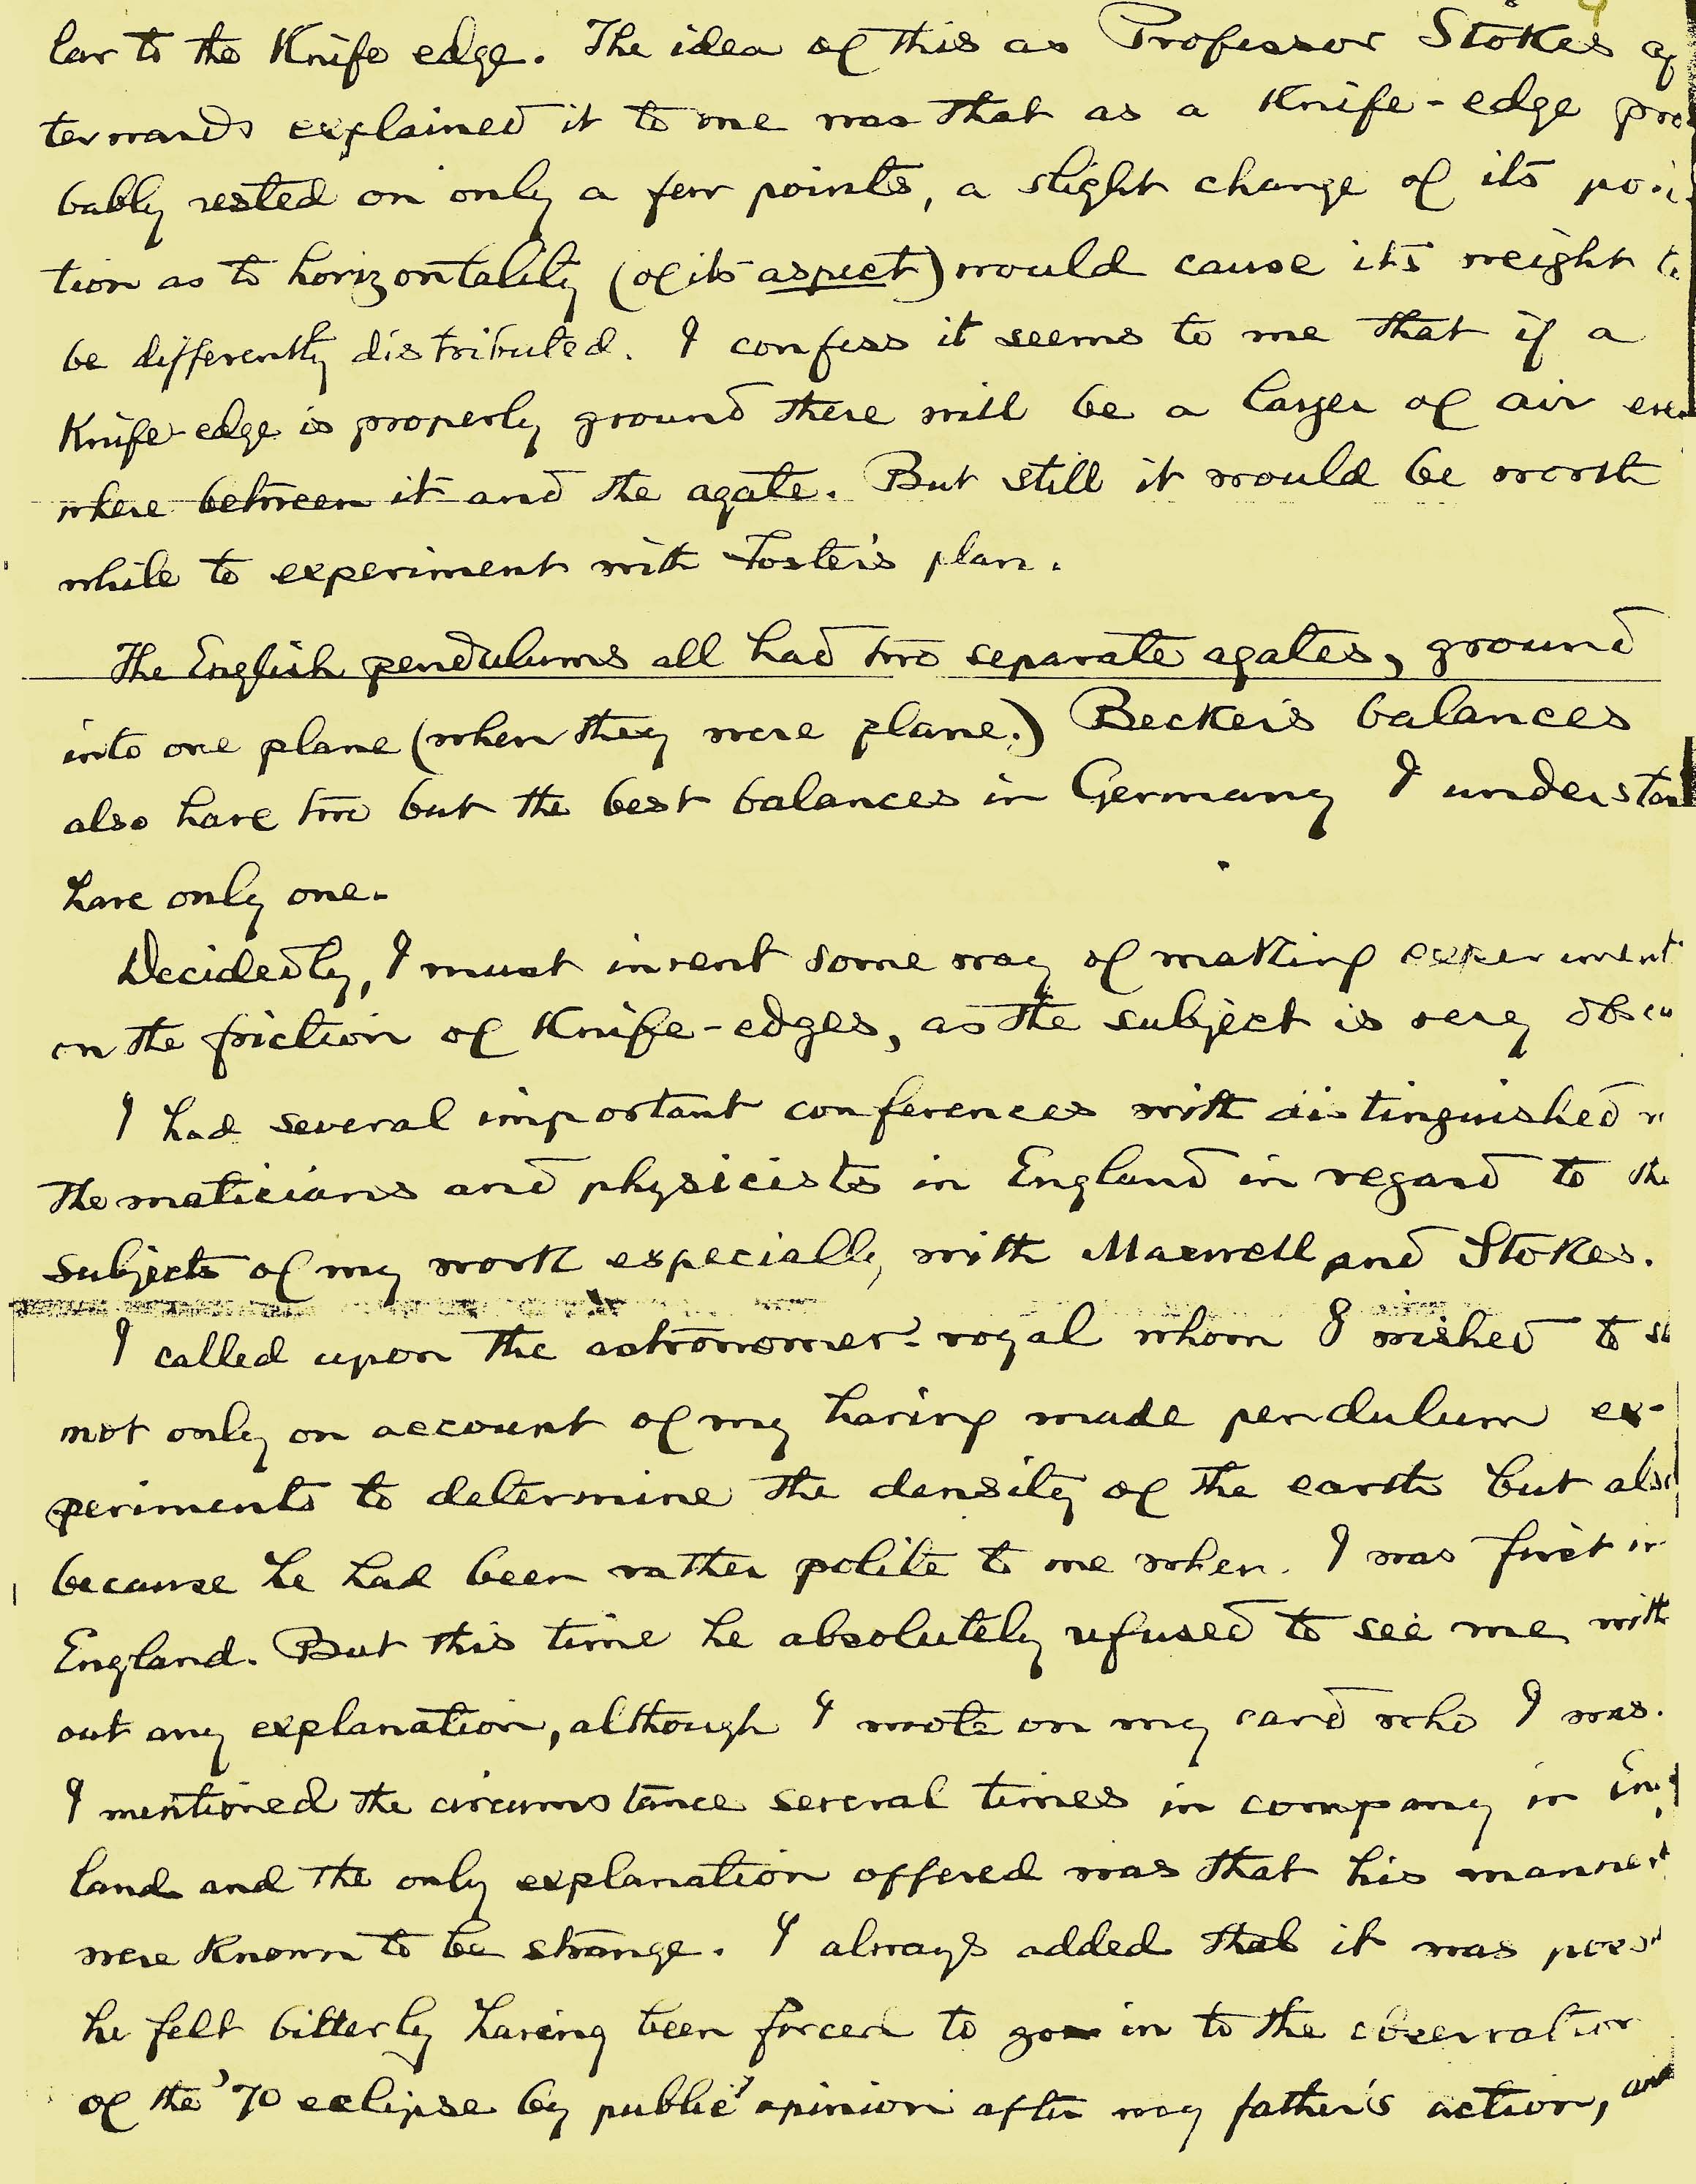 lar to the Knife edge. The idea of this as Professor Stokes af
terwards explained it to me was that as a Knife-edge pro
bably rested on only a few points, a slight change of its posi
tion as to horizontality (of its aspect) would cause its weight to
be differently distributed. I confess it seems to me that if a
Knife-edge is properly ground there will be a layer of air every
where between it and the agate. But still it would be worth
while to experiment with Foster's plan.
The English pendulums all had two separate agates, ground
into one plane (when they were plane.) Becker's balances
also have two but the best balances in Germany I understan
have only one.
Decidedly, I must invent some way of making experiment
on the friction of Knife-edges, as the subject is very obscu
I had several important conferences with distinguished
thematicians and physicists in England in regard to the
subjects of my work especially with Maxwell and Stokes.
I called upon the astronomer-royal whom I wished to se
not only on account of my having made pendulum ex-
periments to determine the density of the earth but also
because he had been rather polite to me when I was first in
England. But this time he absolutely refused to see me with
out any explanation, although I wrote on my card who I was.
I mentioned the circumstance several times in company in Eng
land and the only explanation offered was that his manners
were known to be strange. I always added that it was poss
he felt bitterly having been forced to go in to the observation
of the '70 eclipse by public opinion after my father's action, and